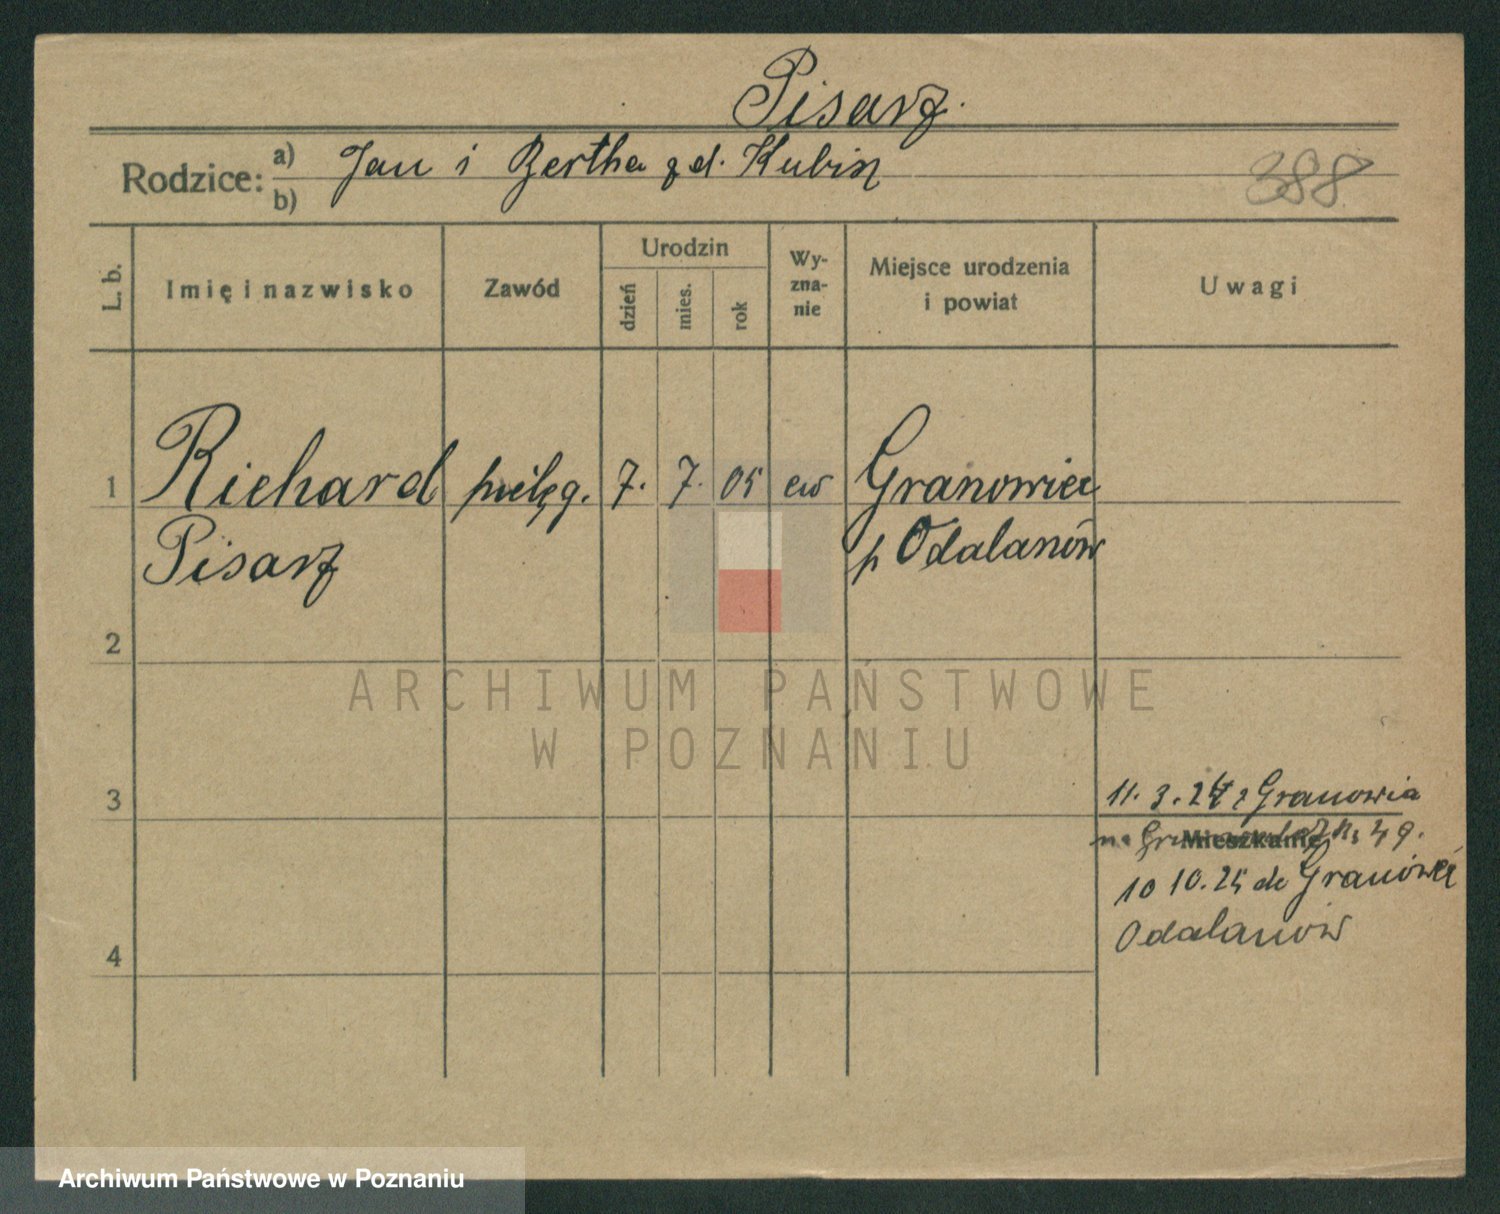 Pisarz.
Rodzice: a) Jan i Bertha z d. Kubis
b)
388
L. b. Imię i nazwisko Zawód Urodzin dzień mies. rok Wy-zna-nie Miejsce urodzenia i powiat Uwagi
1 Richard pielęg. 7. 7. 05 ew Granowiec
Pisarz p Odalanów
2
ARCHIWUM PAŃSTWOWE
W POZNANIU
3
11. 3. 24 z Granowia
Mieszkanie 49.
10 10. 25 do Granowiec
Odalanów
4
Archiwum Państwowe w Poznaniu